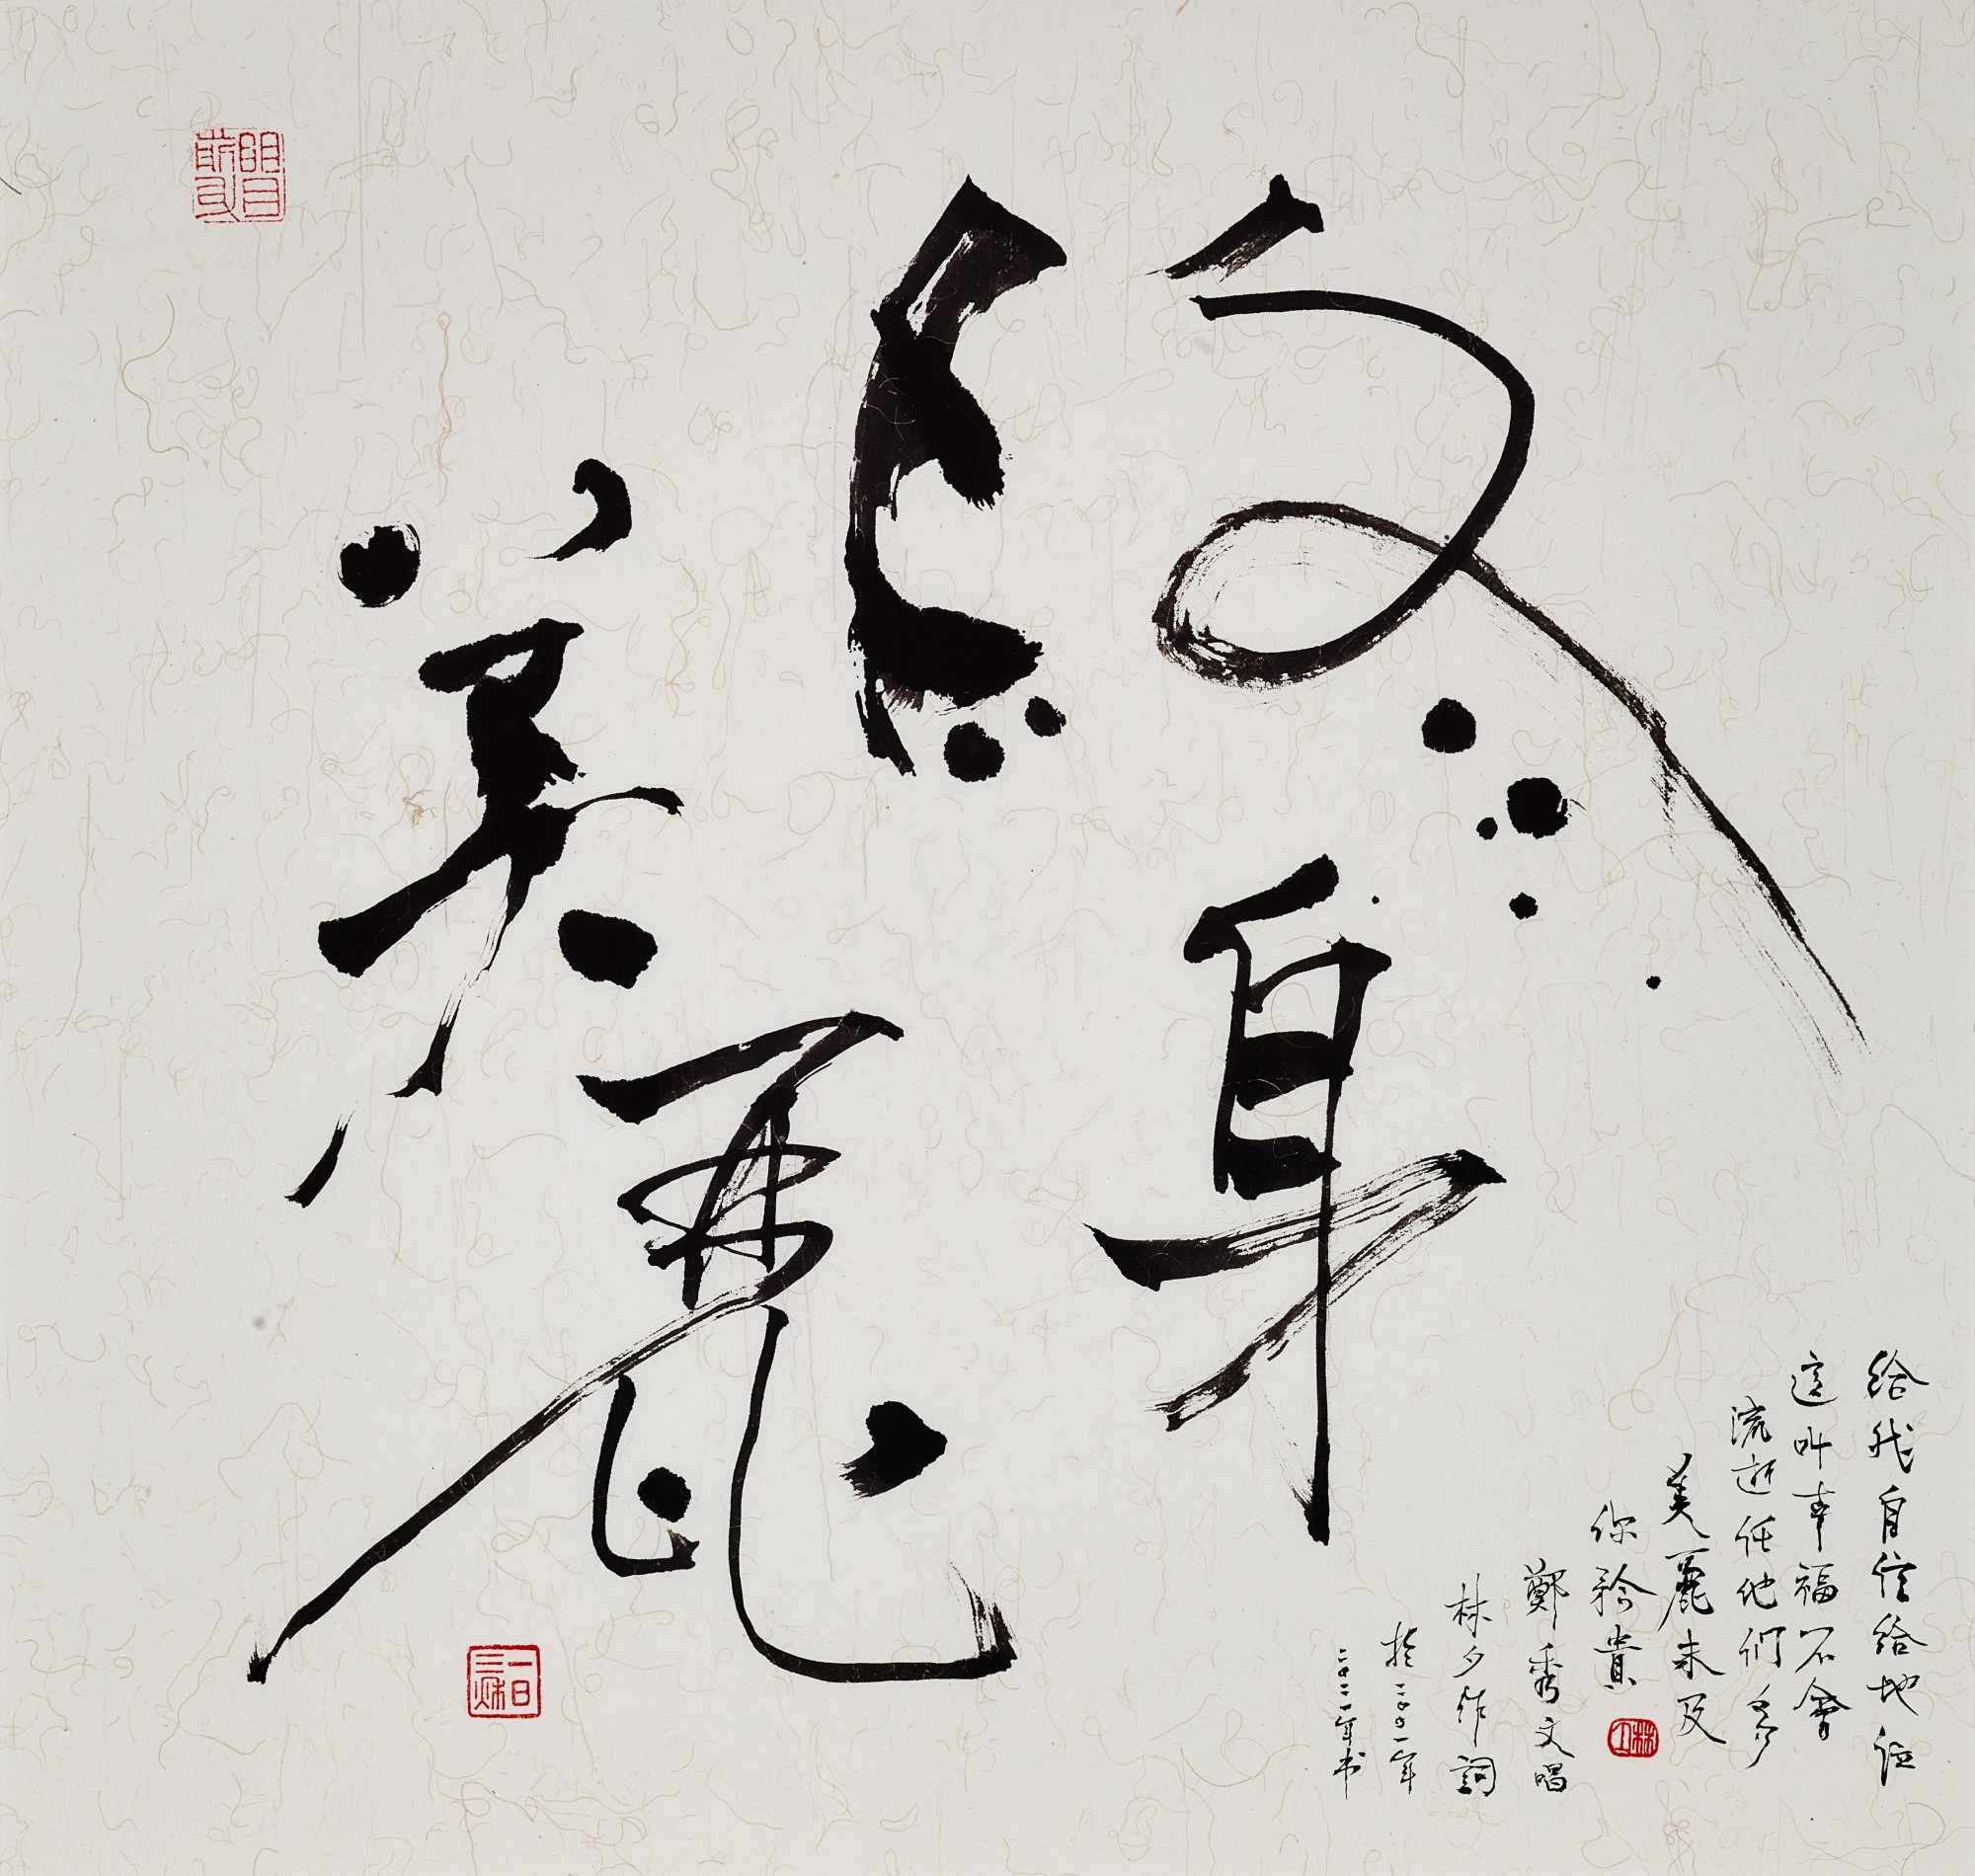 終身
美麗
給我自信給地位
這叫幸福不會
流逝任他們多
美麗未及
你矜貴
鄭秀文唱
林夕作詞
於二〇〇一年
二〇二一年书
一日三秋